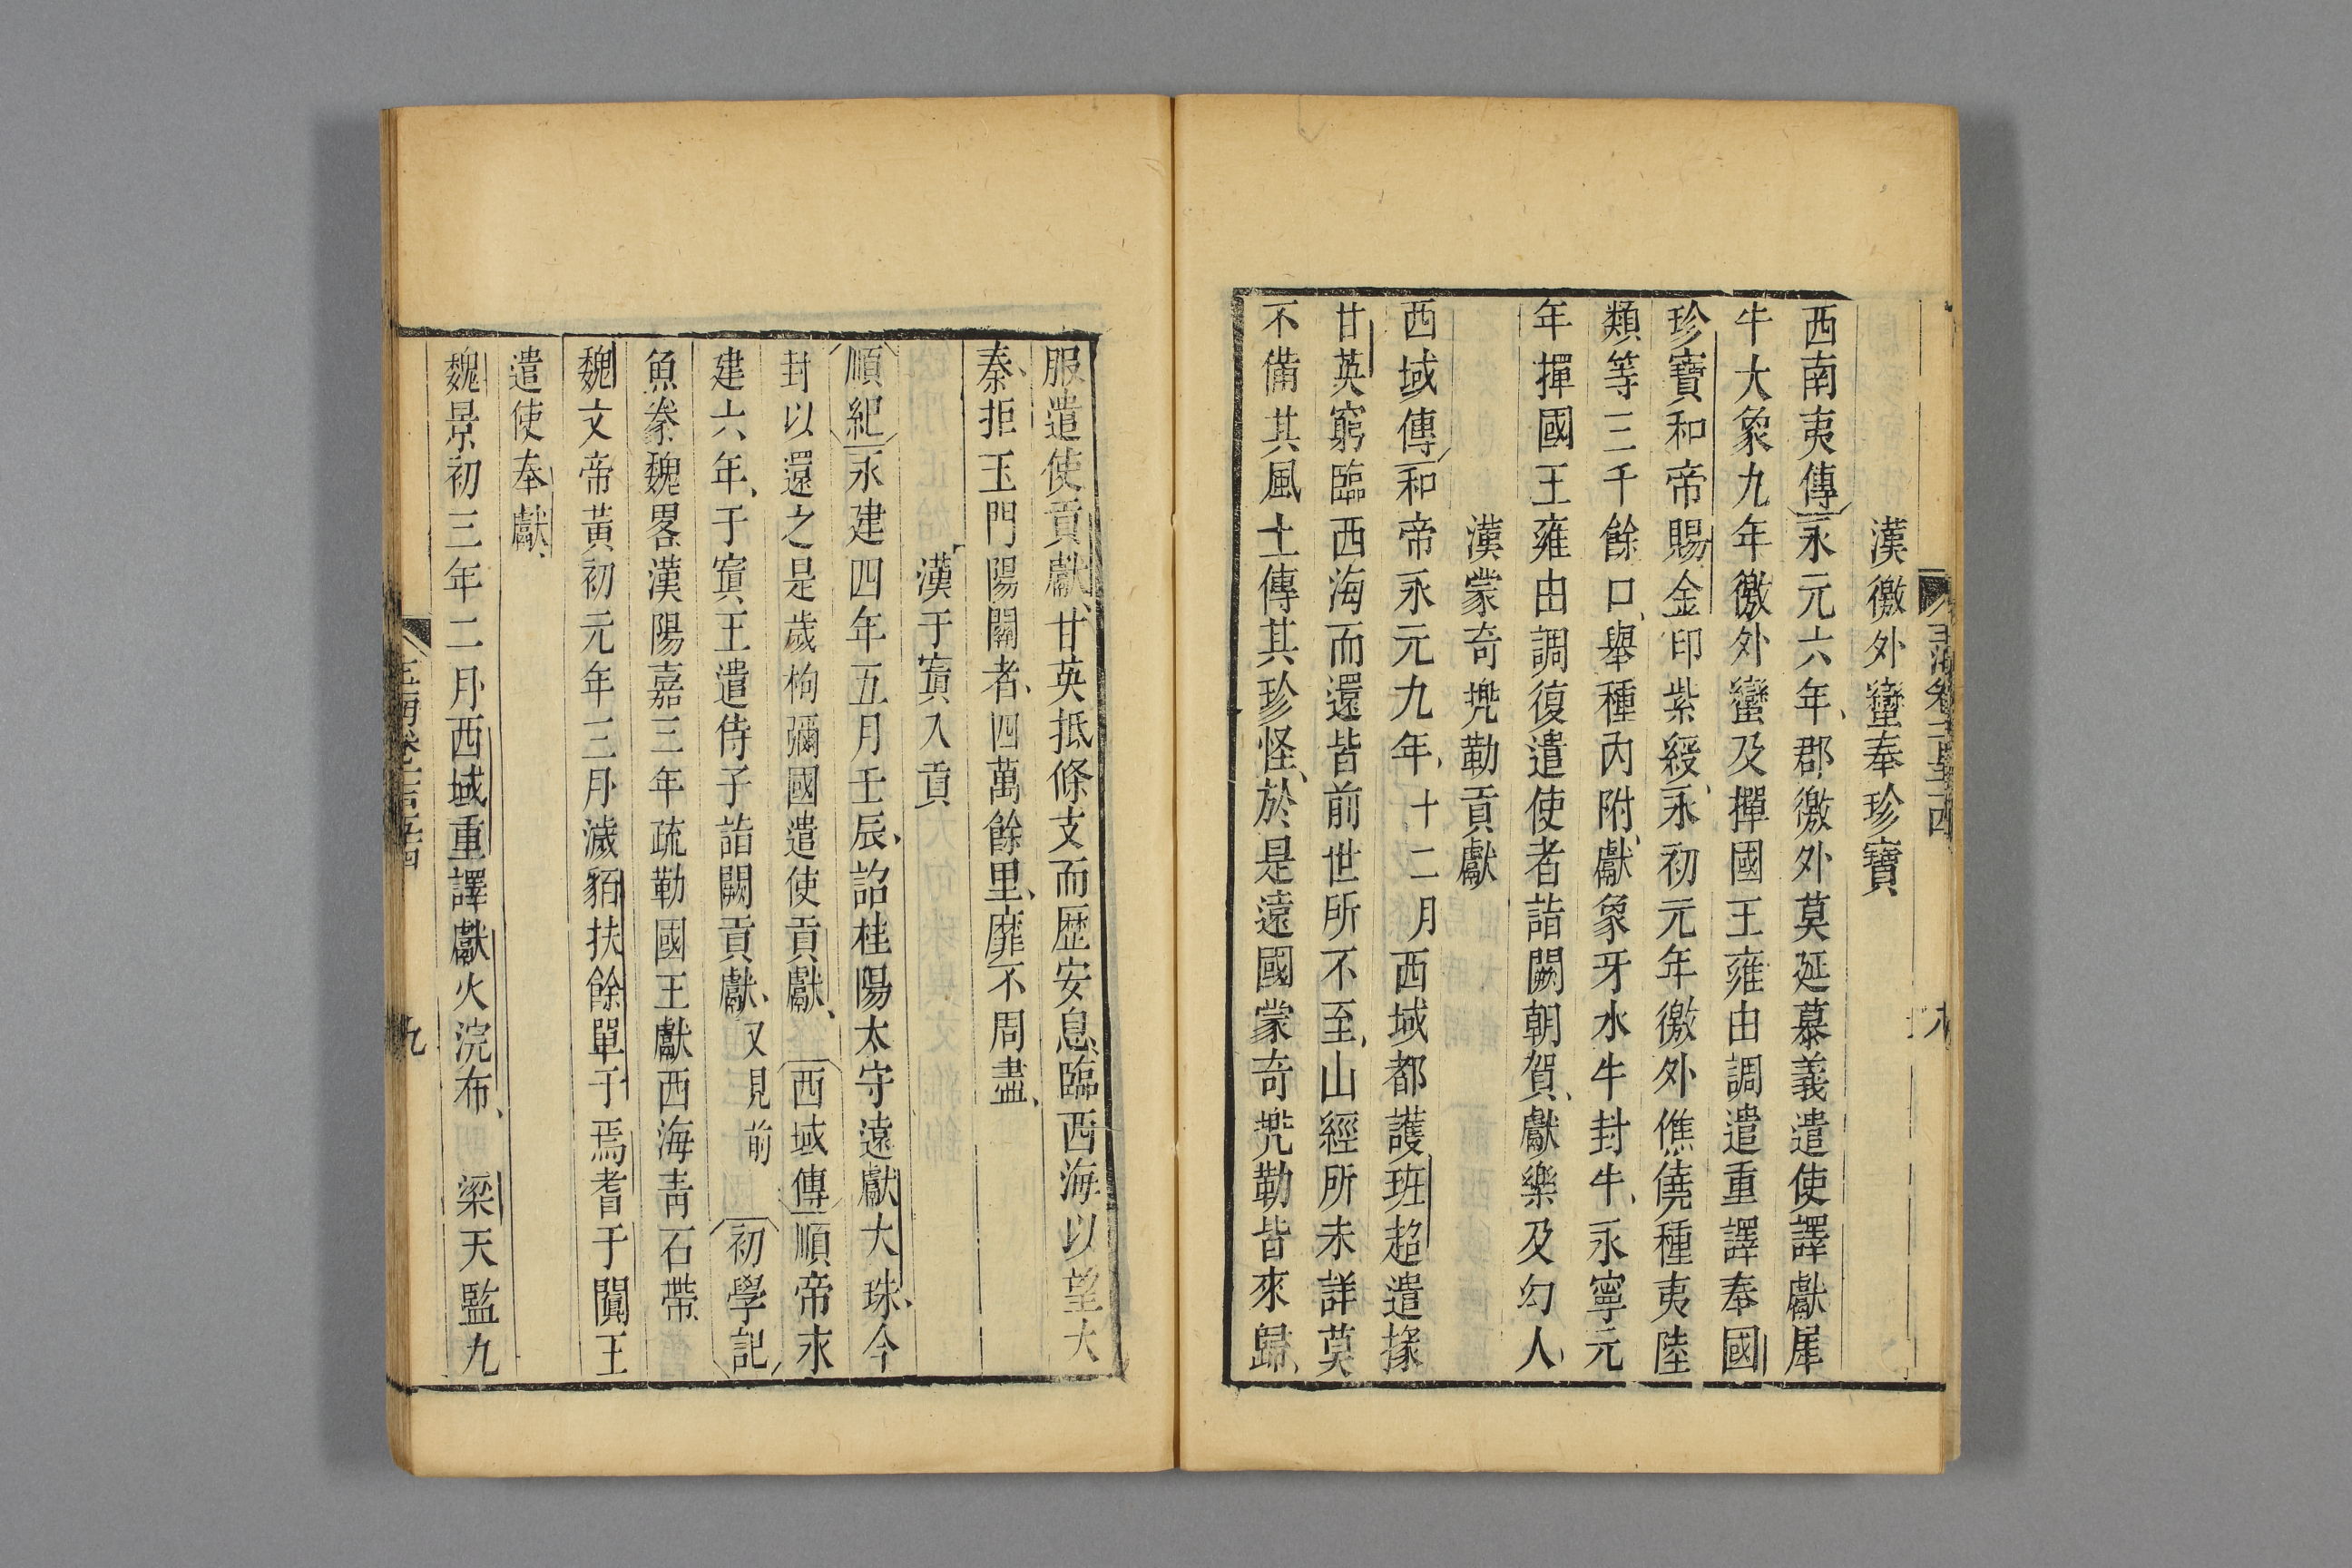 漢徼外蠻奉珍寶
西南夷傳永元六年、郡徼外莫延慕義遣使譯獻犀
牛大象九年徼外蠻及撣國王雍由調遣重譯奉國
珍寶和帝賜金印紫綬、永初元年徼外僬僥種夷陸
類等三千餘口、舉種內附、獻象牙水牛封牛、永寧元
年撣國王雍由調復遣使者詣闕朝賀、獻樂及幻人、
漢蒙奇兠勒貢獻
西域傳和帝永元九年、十二月西域都護班超遣掾
甘英窮臨西海而還皆前世所不至、山經所未詳莫
不備其風土傳其珍怪、於是遠國蒙奇兠勒皆來歸、
服遣使貢獻、甘英抵條支而歷安息臨西海以望大
秦、拒玉門陽關者、四萬餘里、靡不周盡、
漢于窴入貢
順紀永建四年五月壬辰、詔桂陽太守遠獻大珠、今
封以還之是歲枸彌國遣使貢獻、西域傳順帝永
建六年、于窴王遣侍子詣闕貢獻、又見前 初學記
魚豢魏畧漢陽嘉三年疏勒國王獻西海青石帶、
魏文帝黃初元年三月濊貊扶餘單于焉耆于闐王
遣使奉獻、
魏景初三年二月西域重譯獻火浣布、 梁天監九
九